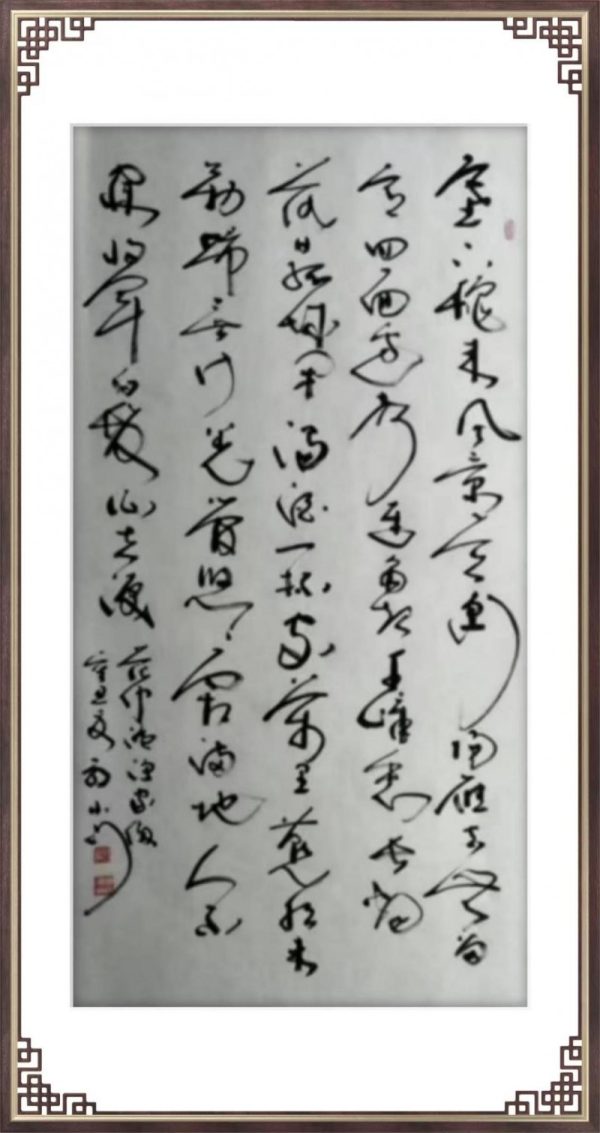 塞下秋来风景异衡阳雁去无留
意四面边声连角起千嶂里长烟
落日孤城闭浊酒一杯家万里燕然未
勒归无计羌管悠悠霜满地人不
寐将军白发征夫泪
范仲淹渔家傲
辛丑夏